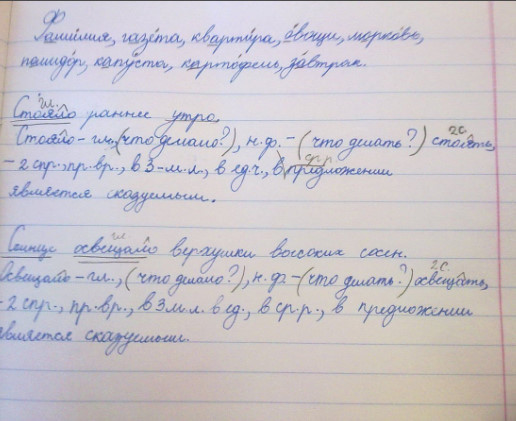 Ф
Фамилия, газета, квартира, овощи, морковь,
помидор, капуста, картофель, завтрак.
гл.
Стояло раннее утро.
2с.
Стояло - гл., (что делало?), н.ф. - (что делать?) стоять,
ср.р.
- 2 спр., пр.вр., в 3-м.л., в ед.ч., в предложении
является сказуемым.
гл.
Солнце освещало верхушки высоких сосен.
2с.
Освещало - гл., (что делало?), н.ф. - (что делать?) освещать,
- 2 спр., пр.вр., в 3 м.л. в ед., в ср.р., в предложении
является сказуемым.